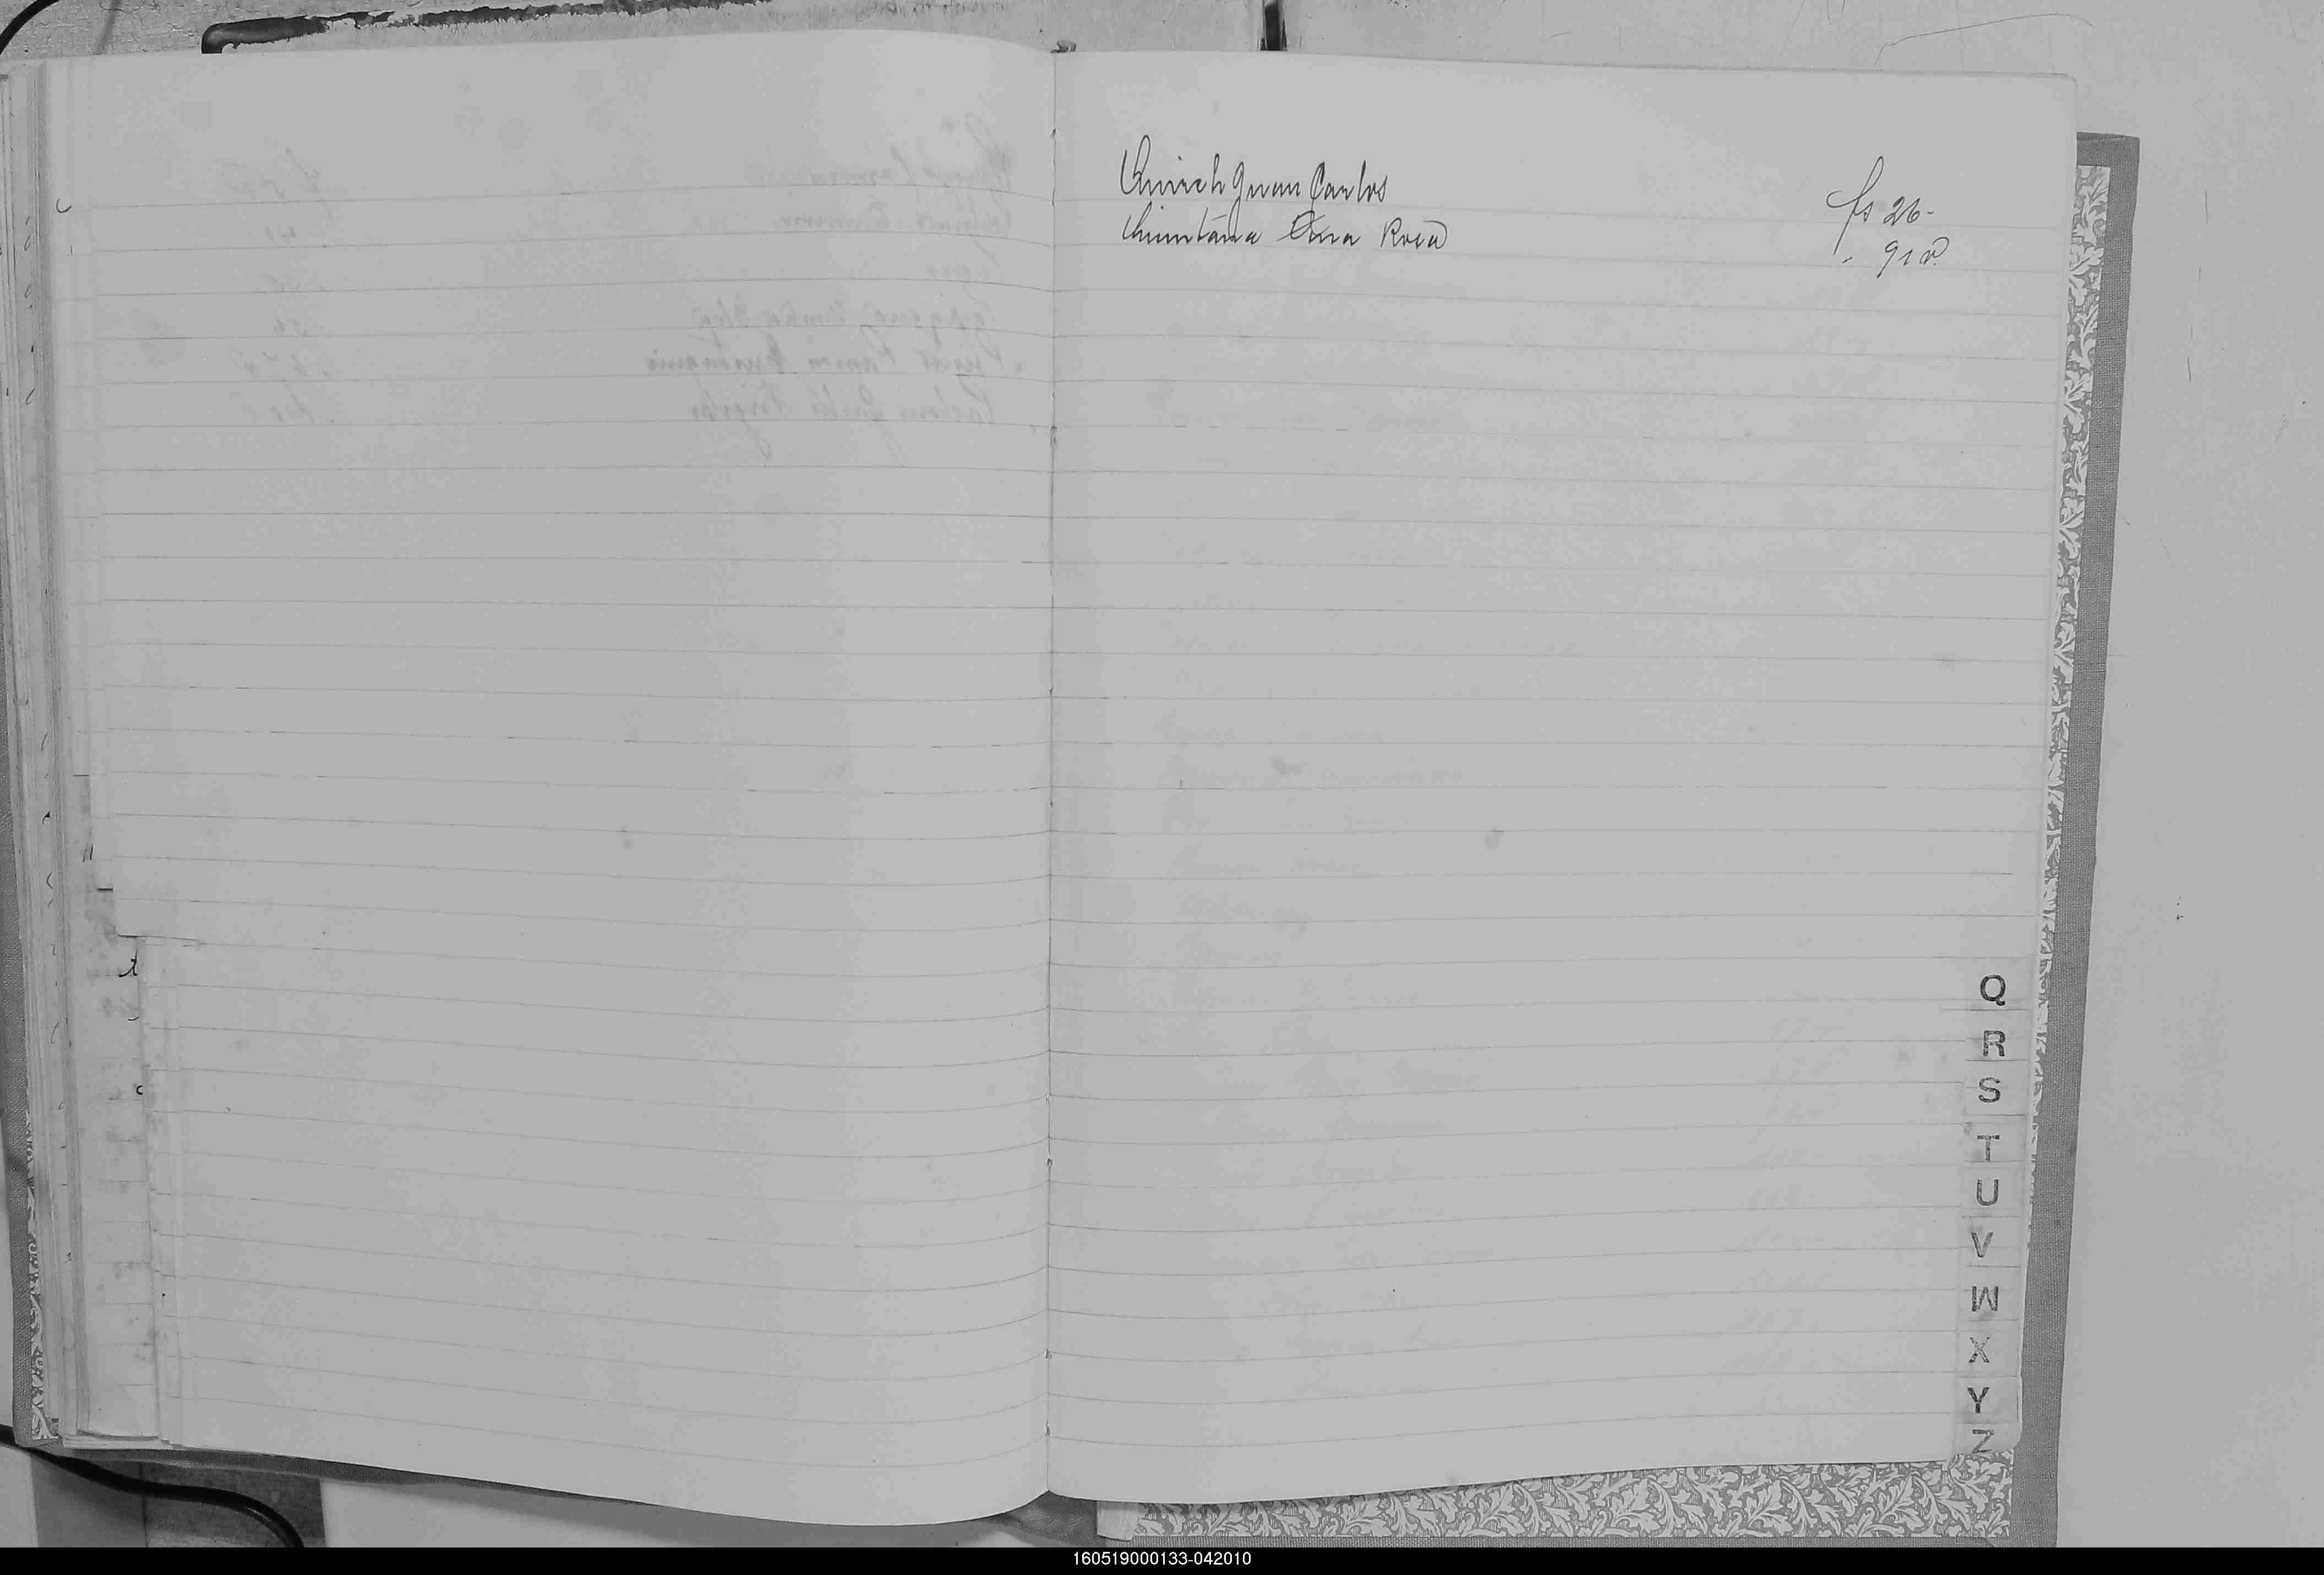 Quirch Juan Carlos fs 26-
Quintana Ana Rosa " 91 v.
Q
R
S
T
U
V
W
X
Y
Z
160519000133-042010